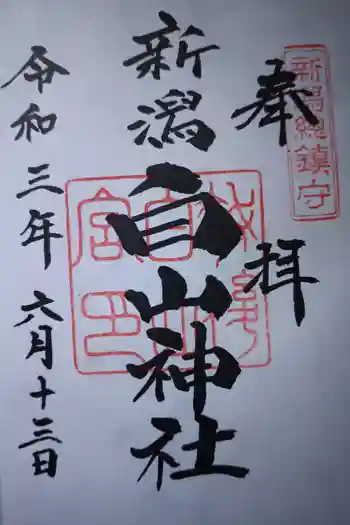 新潟總鎮守
奉拝
新潟白山神社
令和三年六月十三日